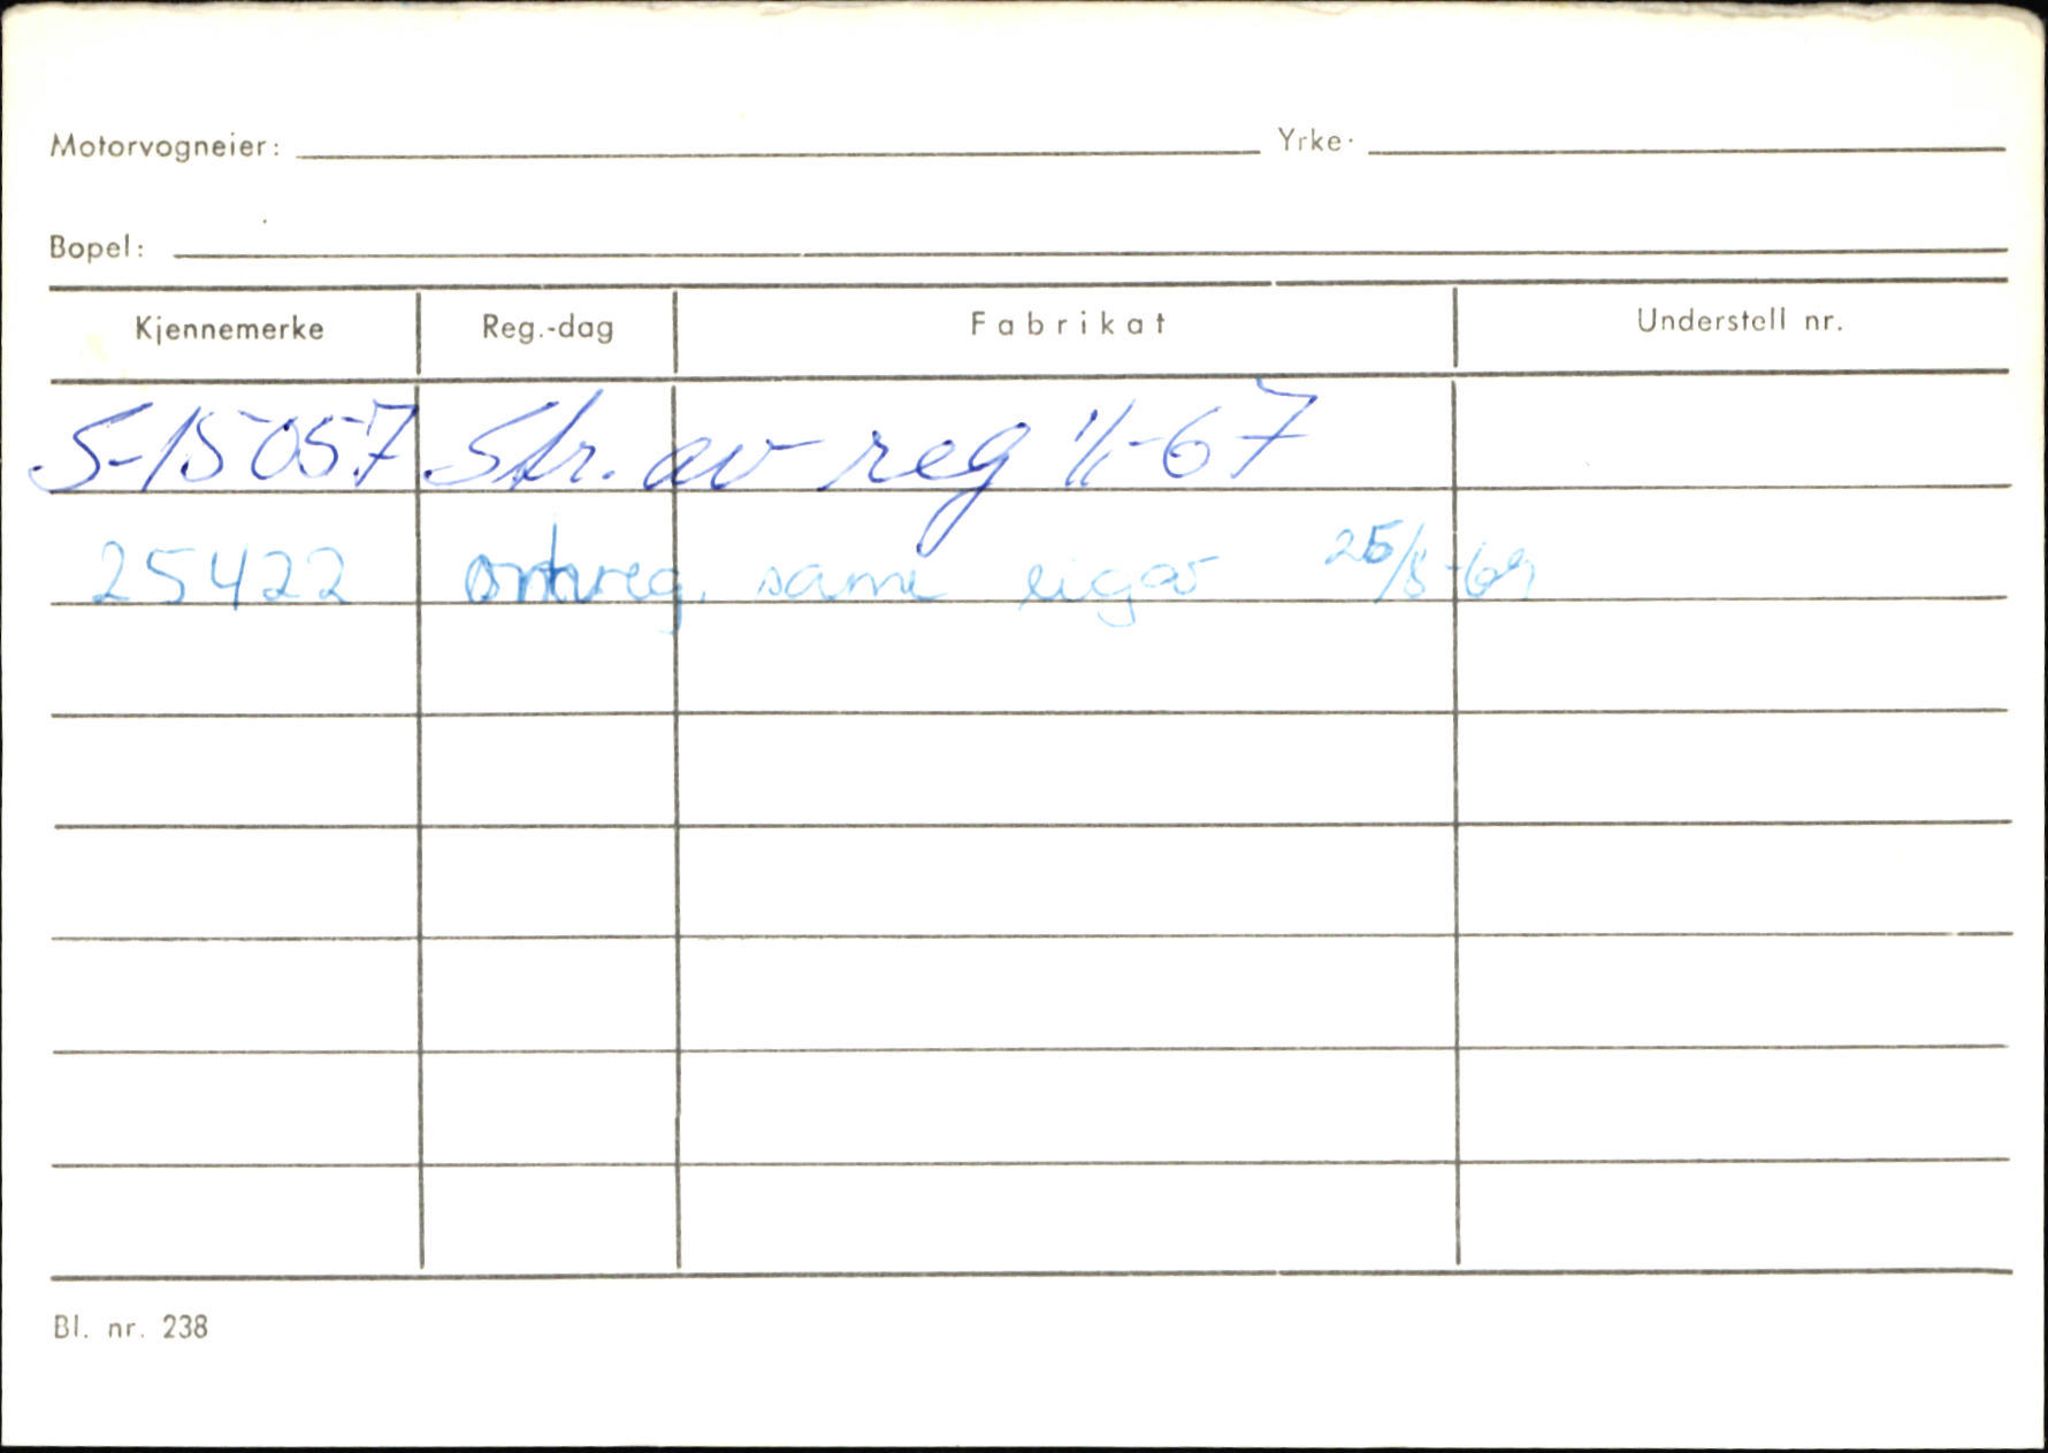 Motorvogneier: Yrke.
Bopel:
Kjennemerke Reg.-dag Fabrikat Understell nr.
S-15057 Str. av reg 1/1-67
25422 omreg. same eigar 25/8-69
Bl. nr. 238